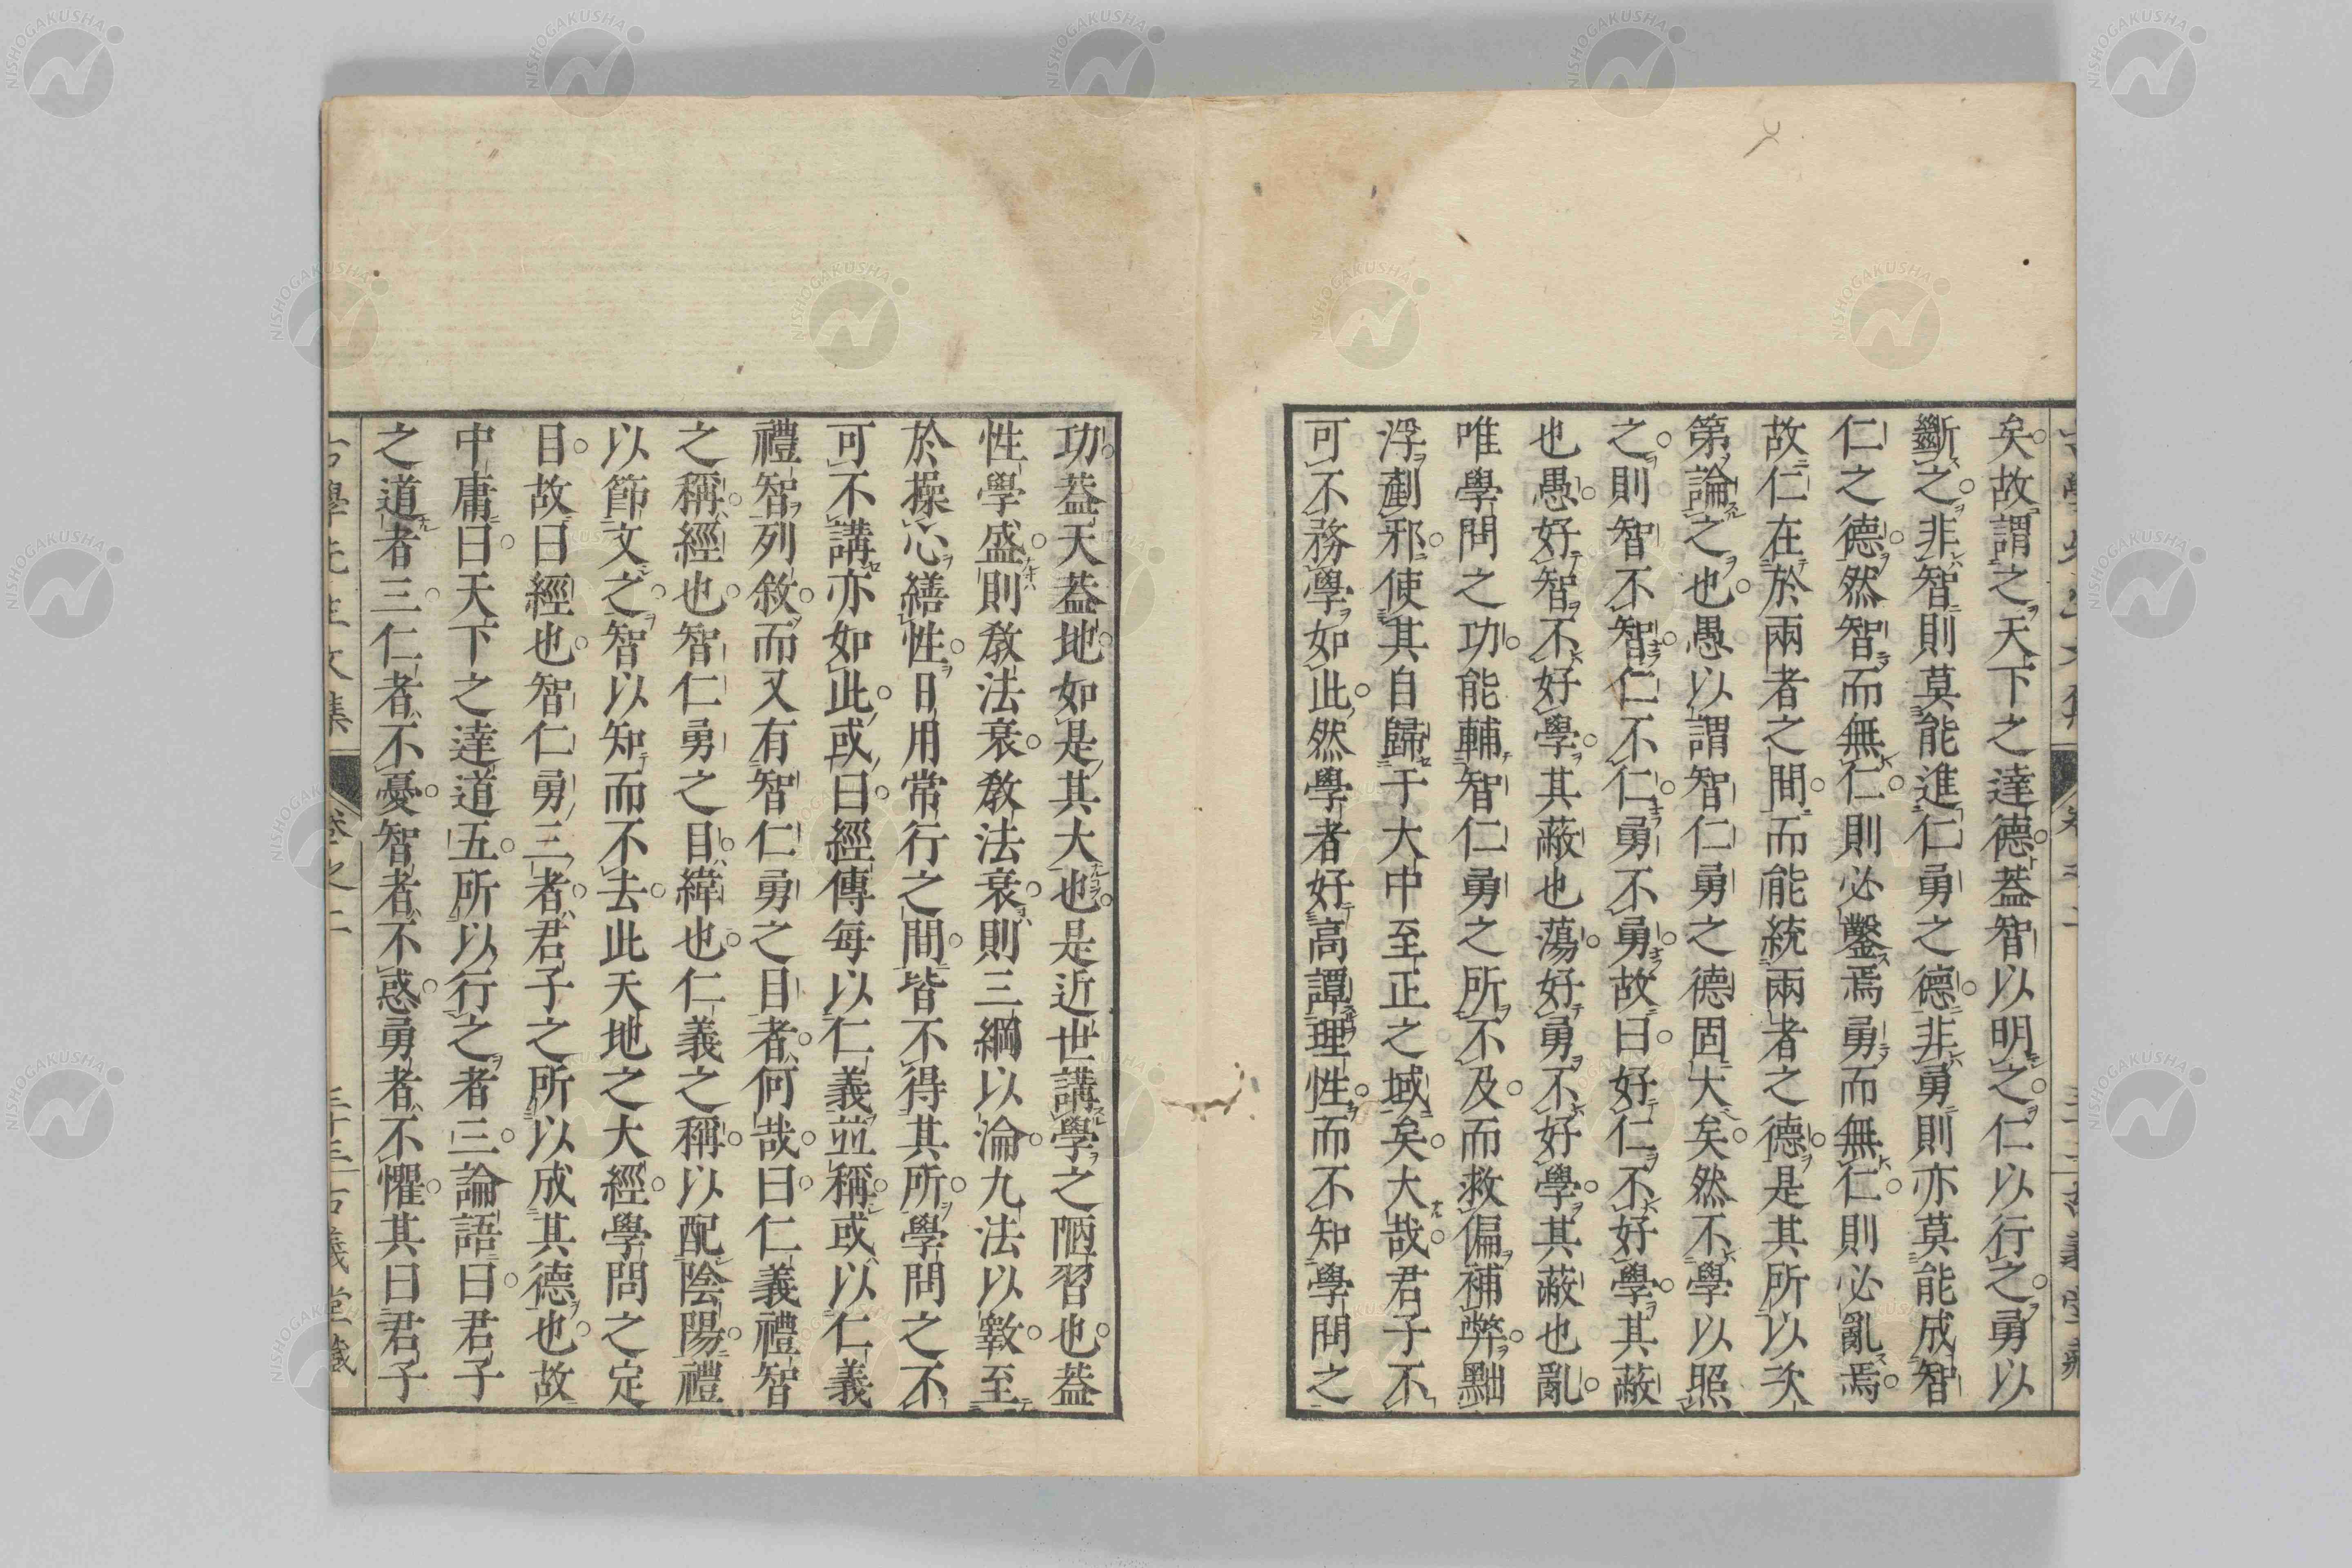 矣。故謂之天下之達德。蓋智以明之。仁以行之。勇以
斷之。非智則莫能進仁勇之德。非勇則亦莫能成智
仁之德。然智而無仁。則必鑿焉。勇而無仁。則必亂焉。
故仁在於兩者之間。而能統兩者之德。是其所以次
第論之也。愚以謂智仁勇之德固大矣。然不學以照
之。則智不智。仁不仁。勇不勇。故曰。好仁不好學。其蔽
也愚。好智不好學。其蔽也蕩。好勇不好學。其蔽也亂。
唯學問之功。能輔智仁勇之所不及。而救偏補弊。黜
浮剷邪。使其自歸于大中至正之域矣。大哉。君子不
可不務學如此。然學者好高譚理性。而不知學問之
功。蓋天蓋地。如是其大也。是近世講學之陋習也。蓋
性學盛。則教法衰。教法衰。則三綱以淪。九法以斁。至
於操心繕性。日用常行之間。皆不得其所。學問之不
可不講。亦如此。或曰。經傳每以仁義並稱。或以仁義
禮智列敘。而又有智仁勇之目者。何哉。曰。仁義禮智
之稱。經也。智仁勇之目。緯也。仁義之稱。以配陰陽。禮
以節文之。智以知而不去。此天地之大經。學問之定
目。故曰經也。智仁勇三者。君子之所以成其德也。故
中庸曰。天下之達道五。所以行之者三。論語曰。君子
之道者三。仁者不憂。智者不惑。勇者不懼。其曰君子
古學先生文集 卷之二 古義堂藏